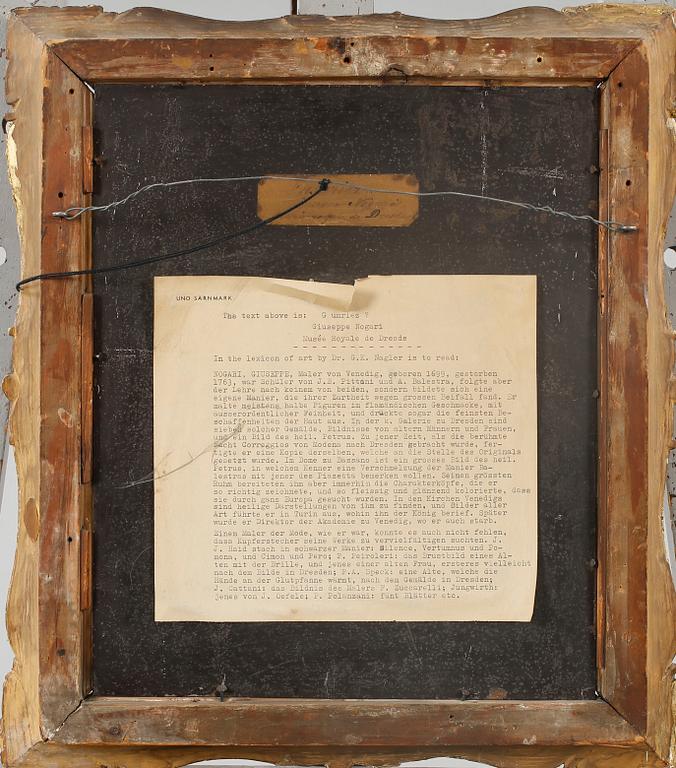 Nogari
de D
UNO SÄRNMARK.
The text above is: G umries ?
Giuseppe Nogari
Musée Royale de Dresde
In the lexicon of art by Dr. G.K. Nagler is to read:
NOGARI, GIUSEPPE, Maler von Venedig, geboren 1699, gestorben
1763, war Schüler von J.B. Pittoni und A. Balestra, folgte aber
der Lehre nach keinem von beiden, sondern bildete sich eine
eigene Manier, die ihrer Zartheit wegen grossen Beifall fand. Er
malte meistens halbe Figuren in flamändischen Geschmacke, mit
ausserordentlicher Feinheit, und drückte sogar die feinsten Be-
schaffenheiten der Haut aus. In der k. Galerie zu Dresden sind
sieben solcher Gemälde, Bildnisse von ältern Männern und Frauen,
und ein Bild des heil. Petrus. Zu jener Zeit, als die berühmte
Nacht Correggios von Modena nach Dresden gebracht wurde, fer-
tigte er eine Kopie derselben, welche an die Stelle des Originals
gesetzt wurde. Im Dome zu Bassano ist ein grosses Bild des heil.
Petrus, in welchem Kenner eine Verschmelzung der Manier Ba-
lestras mit jener des Piazetta bemerken wollen. Seinen grössten
Ruhm bereiteten ihm aber immerhin die Charakterköpfe, die er
so richtig zeichnete, und so fleissig und glänzend kolorierte, dass
sie durch ganz Europa gesucht wurden. In den Kirchen Venedigs
sind heilige Darstellungen von ihm zu finden, und Bilder aller
Art führte er in Turin aus, wohin ihn der König berief. Später
wurde er Direktor der Akademie zu Venedig, wo er auch starb.
Einem Maler der Mode, wie er war, konnte es auch nicht fehlen,
dass Kupferstecher seine Werke zu vervielfältigen suchten. J.
J. Haid stach in schwarzer Manier: Silence, Vertumnus und Po-
mona, und Cimon und Pero; P. Peiroleri: das Brustbild eines Al-
ten mit der Brille, und jenes einer alten Frau, ersteres vielleicht
nach dem Bilde in Dresden; P.A. Speck: eine Alte, welche die
Hände an der Glutpfanne wärmt, nach dem Gemälde in Dresden;
J. Cattani: das Bildnis des Malers F. Zuccarelli; Jungwirth:
jenes von J. Oefele; F. Polanzani: fünf Blätter etc.